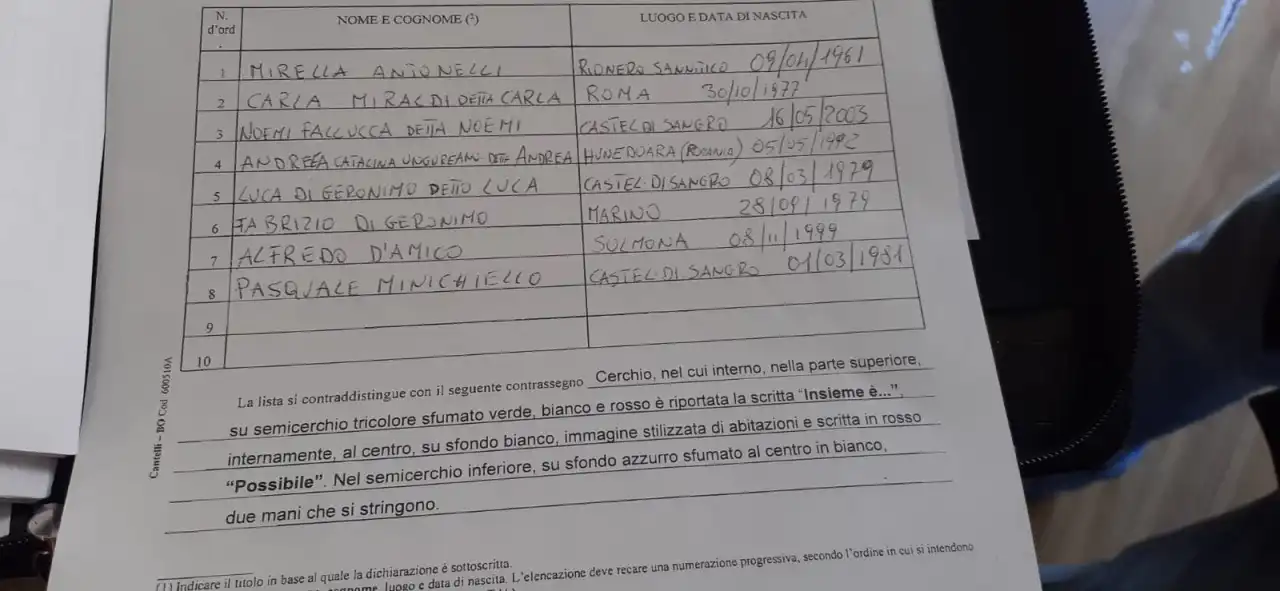 N. d'ord. NOME E COGNOME (²) LUOGO E DATA DI NASCITA
1 MIRELLA ANTONELLI RIONERO SANNITICO 09/04/1961
2 CARLA MIRALDI DETTA CARLA ROMA 30/10/1977
3 NOEMI FALLUCCA DETTA NOEMI CASTEL DI SANGRO 16/05/2003
4 ANDREEA CATALINA UNGUREANU DETTA ANDREA HUNEDOARA (ROMANIA) 05/05/1992
5 LUCA DI GERONIMO DETTO LUCA CASTEL DI SANGRO 08/03/1979
6 FABRIZIO DI GERONIMO MARINO 28/09/1979
7 ALFREDO D'AMICO SULMONA 08/11/1999
8 PASQUALE MINICHIELLO CASTEL DI SANGRO 01/03/1981
9
10
La lista si contraddistingue con il seguente contrassegno Cerchio, nel cui interno, nella parte superiore,
su semicerchio tricolore sfumato verde, bianco e rosso è riportata la scritta "Insieme è...",
internamente, al centro, su sfondo bianco, immagine stilizzata di abitazioni e scritta in rosso
"Possibile". Nel semicerchio inferiore, su sfondo azzurro sfumato al centro in bianco,
due mani che si stringono.
Cantelli – BO Cod 600510A
(1) Indicare il titolo in base al quale la dichiarazione è sottoscritta.
luogo e data di nascita. L'elencazione deve recare una numerazione progressiva, secondo l'ordine in cui si intendono